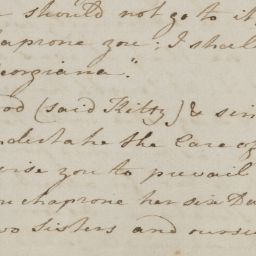 should not go to it,
haprone you; I shall
eorgiana."
od (said Kitty) & sin
ndertake the Care of
ise you to prevail
u chaprone her six Da
wo Sisters and ourse